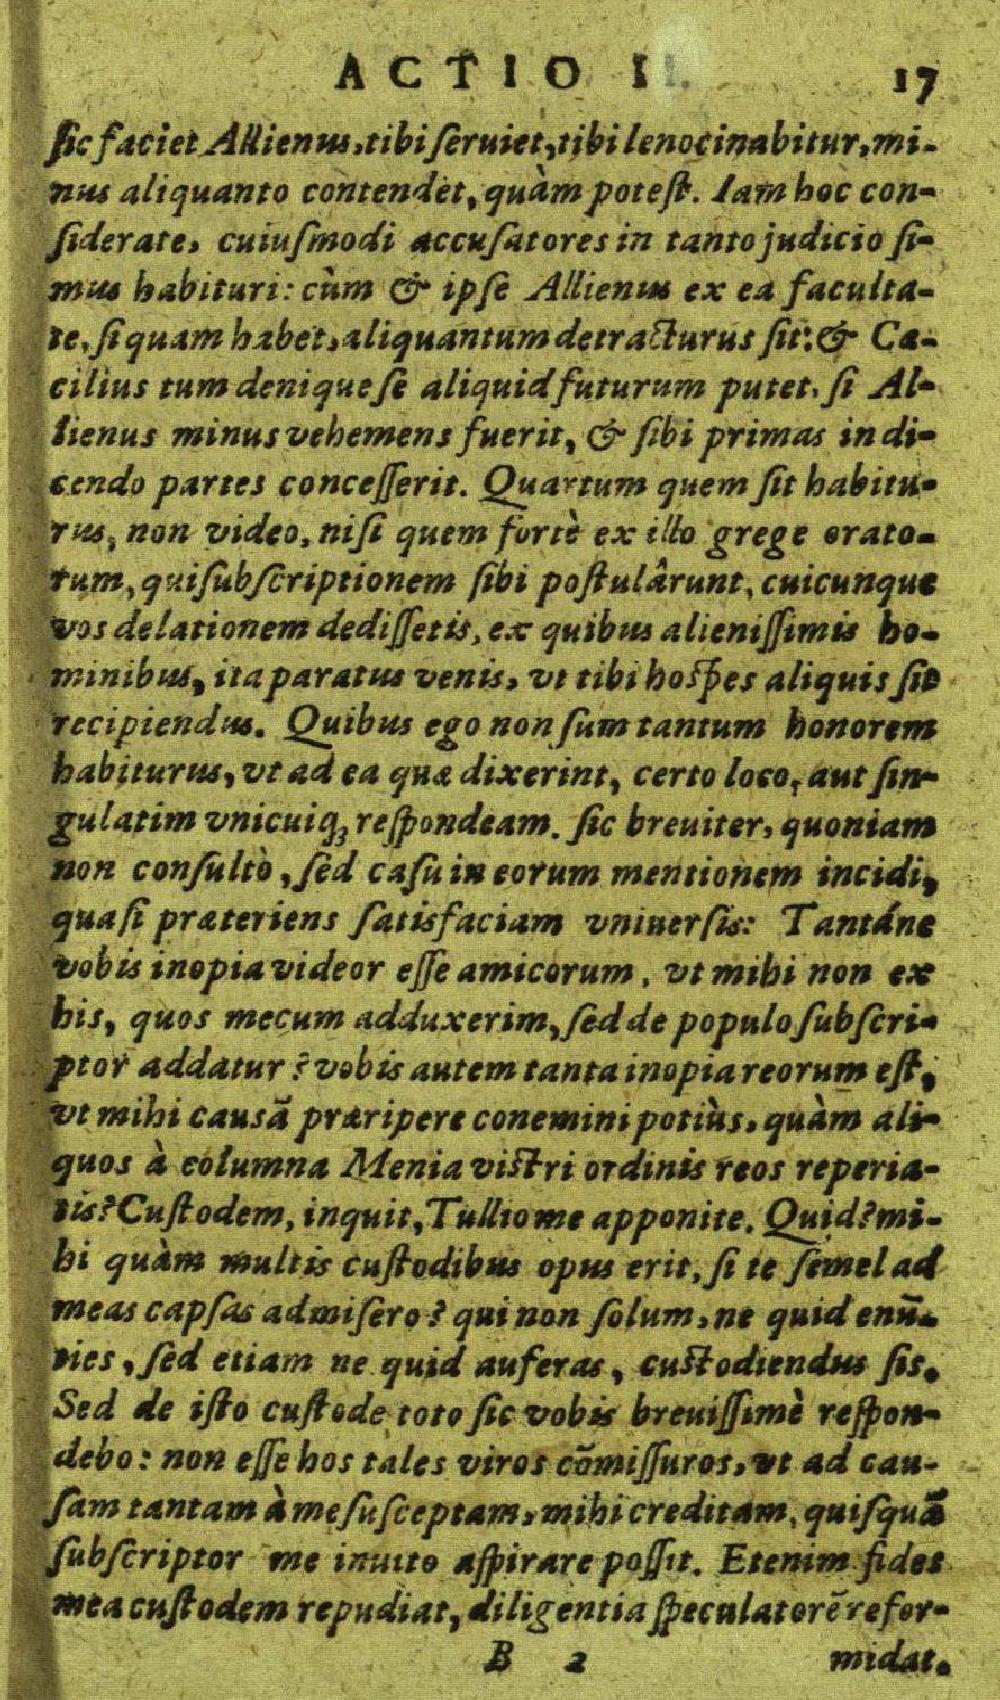 ACTIO II. 17
ſic faciet Allienus, tibi ſeruiet, tibi lenocinabitur, mi-
nus aliquanto contendet, quàm poteſt. Iam hoc con-
ſiderate, cuiuſmodi accuſatores in tanto judicio ſi-
mus habituri: cùm & ipſe Allienus ex ea faculta-
te, ſi quam habet, aliquantum detracturus ſit: & Cæ-
cilius tum denique ſe aliquid futurum putet, ſi Al-
lienus minus vehemens fuerit, & ſibi primas in di-
cendo partes conceſſerit. Quartum quem ſit habitu-
rus, non video, niſi quem fortè ex illo grege orato-
rum, qui ſubſcriptionem ſibi poſtulârunt, cuicunque
vos delationem dediſſetis, ex quibus alieniſſimis ho-
minibus, ita paratus venis, vt tibi hoſpes aliquis ſit
recipiendus. Quibus ego non ſum tantum honorem
habiturus, vt ad ea quæ dixerint, certo loco, aut ſin-
gulatim vnicuiq; reſpondeam. ſic breuiter, quoniam
non conſultò, ſed caſu in eorum mentionem incidi,
quaſi præteriens ſatisfaciam vniuerſis: Tantáne
vobis inopia videor eſſe amicorum, vt mihi non ex
his, quos mecum adduxerim, ſed de populo ſubſcri-
ptor addatur? vobis autem tanta inopia reorum eſt,
vt mihi causã præripere conemini potiùs, quàm ali-
quos à columna Menia viſtri ordinis reos reperia-
tis? Cuſtodem, inquit, Tullio me apponite. Quid? mi-
hi quàm multis cuſtodibus opus erit, ſi te ſemel ad
meas capſas admiſero? qui non ſolum, ne quid enũ-
ties, ſed etiam ne quid auferas, cuſtodiendus ſis.
Sed de iſto cuſtode toto ſic vobis breuiſſimè reſpon-
debo: non eſſe hos tales viros cõmiſſuros, vt ad cau-
ſam tantam à me ſuſceptam, mihi creditam, quiſquã
ſubſcriptor me inuito aſpirare poſſit. Etenim fides
mea cuſtodem repudiat, diligentia ſpeculatorẽ refor-
B 2 midat.